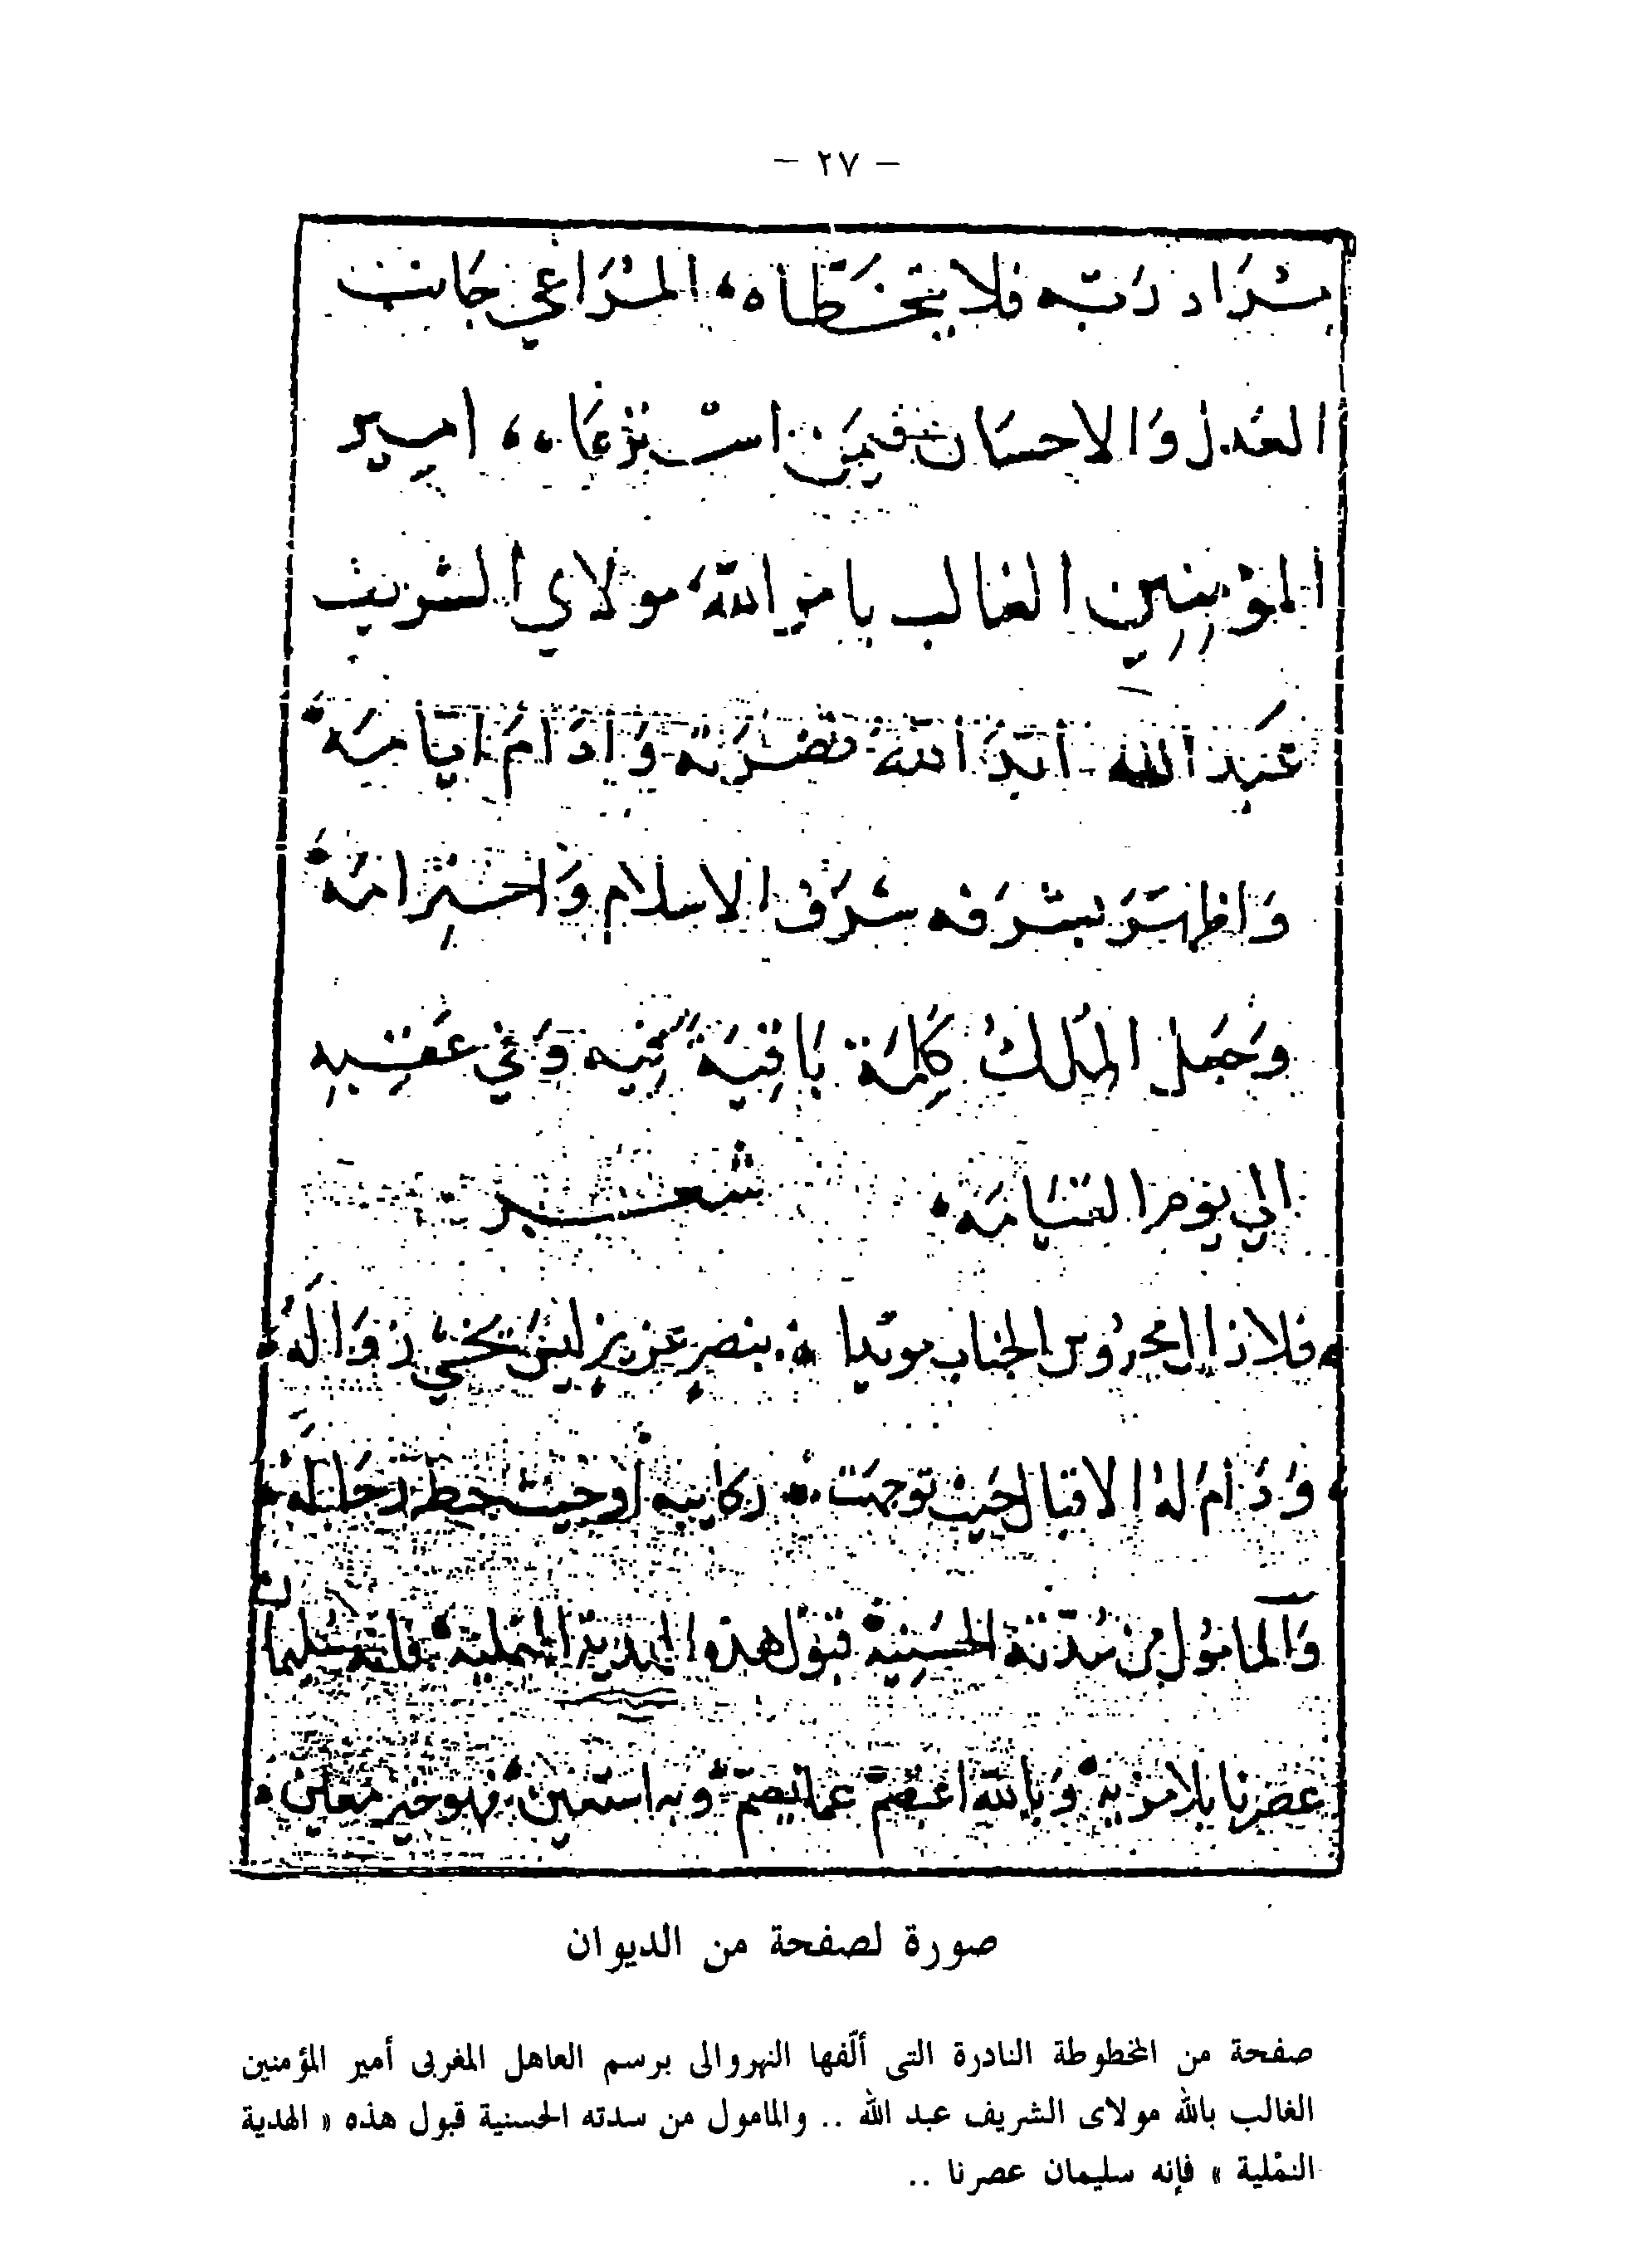 — ٢٧ —
مراد ربه فلا يتخطاه، المراعي جانب
العدل والاحسان فيمن استرعاه، امير
المؤمنين الغالب بامر الله، مولاي الشريف
عبد الله أيد الله نصرته وادام ايامه
واظهر بشرفه شرف الاسلام واحترامه
وجعل الملك كلمة باقية فيه وفي عقبه
الي يوم القيامه شعر
فلا زال محروس الجناب مويدا بنصر عزيز ليس تخشي زواله
ودام له الاقبال حيث توجهت ركايبه او حيث حط رحاله
والمامول من سدته الحسنية قبول هذه الهدية النملية فانه سليمان
عصرنا بلا مزية وبالله اعتصم عما يصم وبه استعين فهو خير معين
صورة لصفحة من الديوان
صفحة من المخطوطة النادرة التى ألّفها النهروالى برسم العاهل المغربى أمير المؤمنين
الغالب بالله مولاى الشريف عبد الله .. والمامول من سدته الحسنية قبول هذه « الهدية
النمْلية » فإنه سليمان عصرنا ..